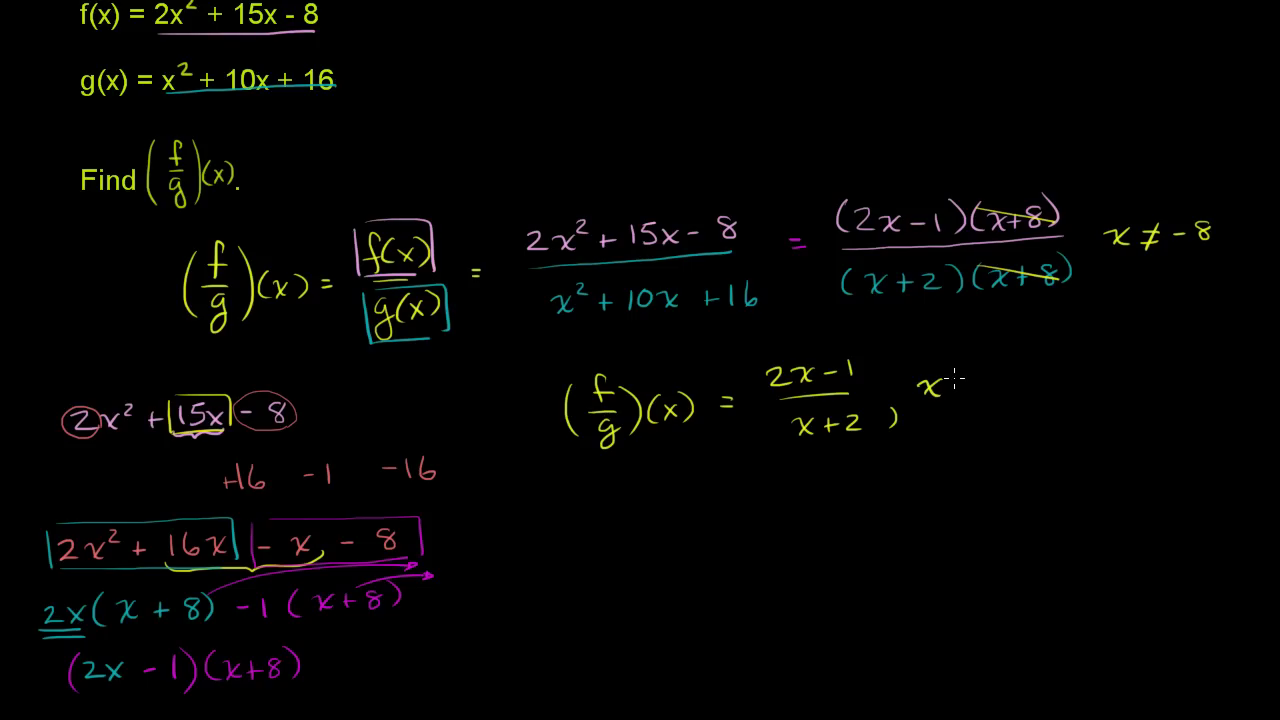 f(x) = 2x² + 15x - 8
g(x) = x² + 10x + 16
Find (f/g)(x).
(f/g)(x) = f(x)/g(x) = (2x² + 15x - 8)/(x² + 10x + 16) = (2x - 1)(x+8)/(x+2)(x+8) x ≠ -8
(f/g)(x) = (2x - 1)/(x + 2), x
2x² + 15x - 8
+16 -1 -16
2x² + 16x - x - 8
2x(x + 8) -1(x+8)
(2x - 1)(x+8)